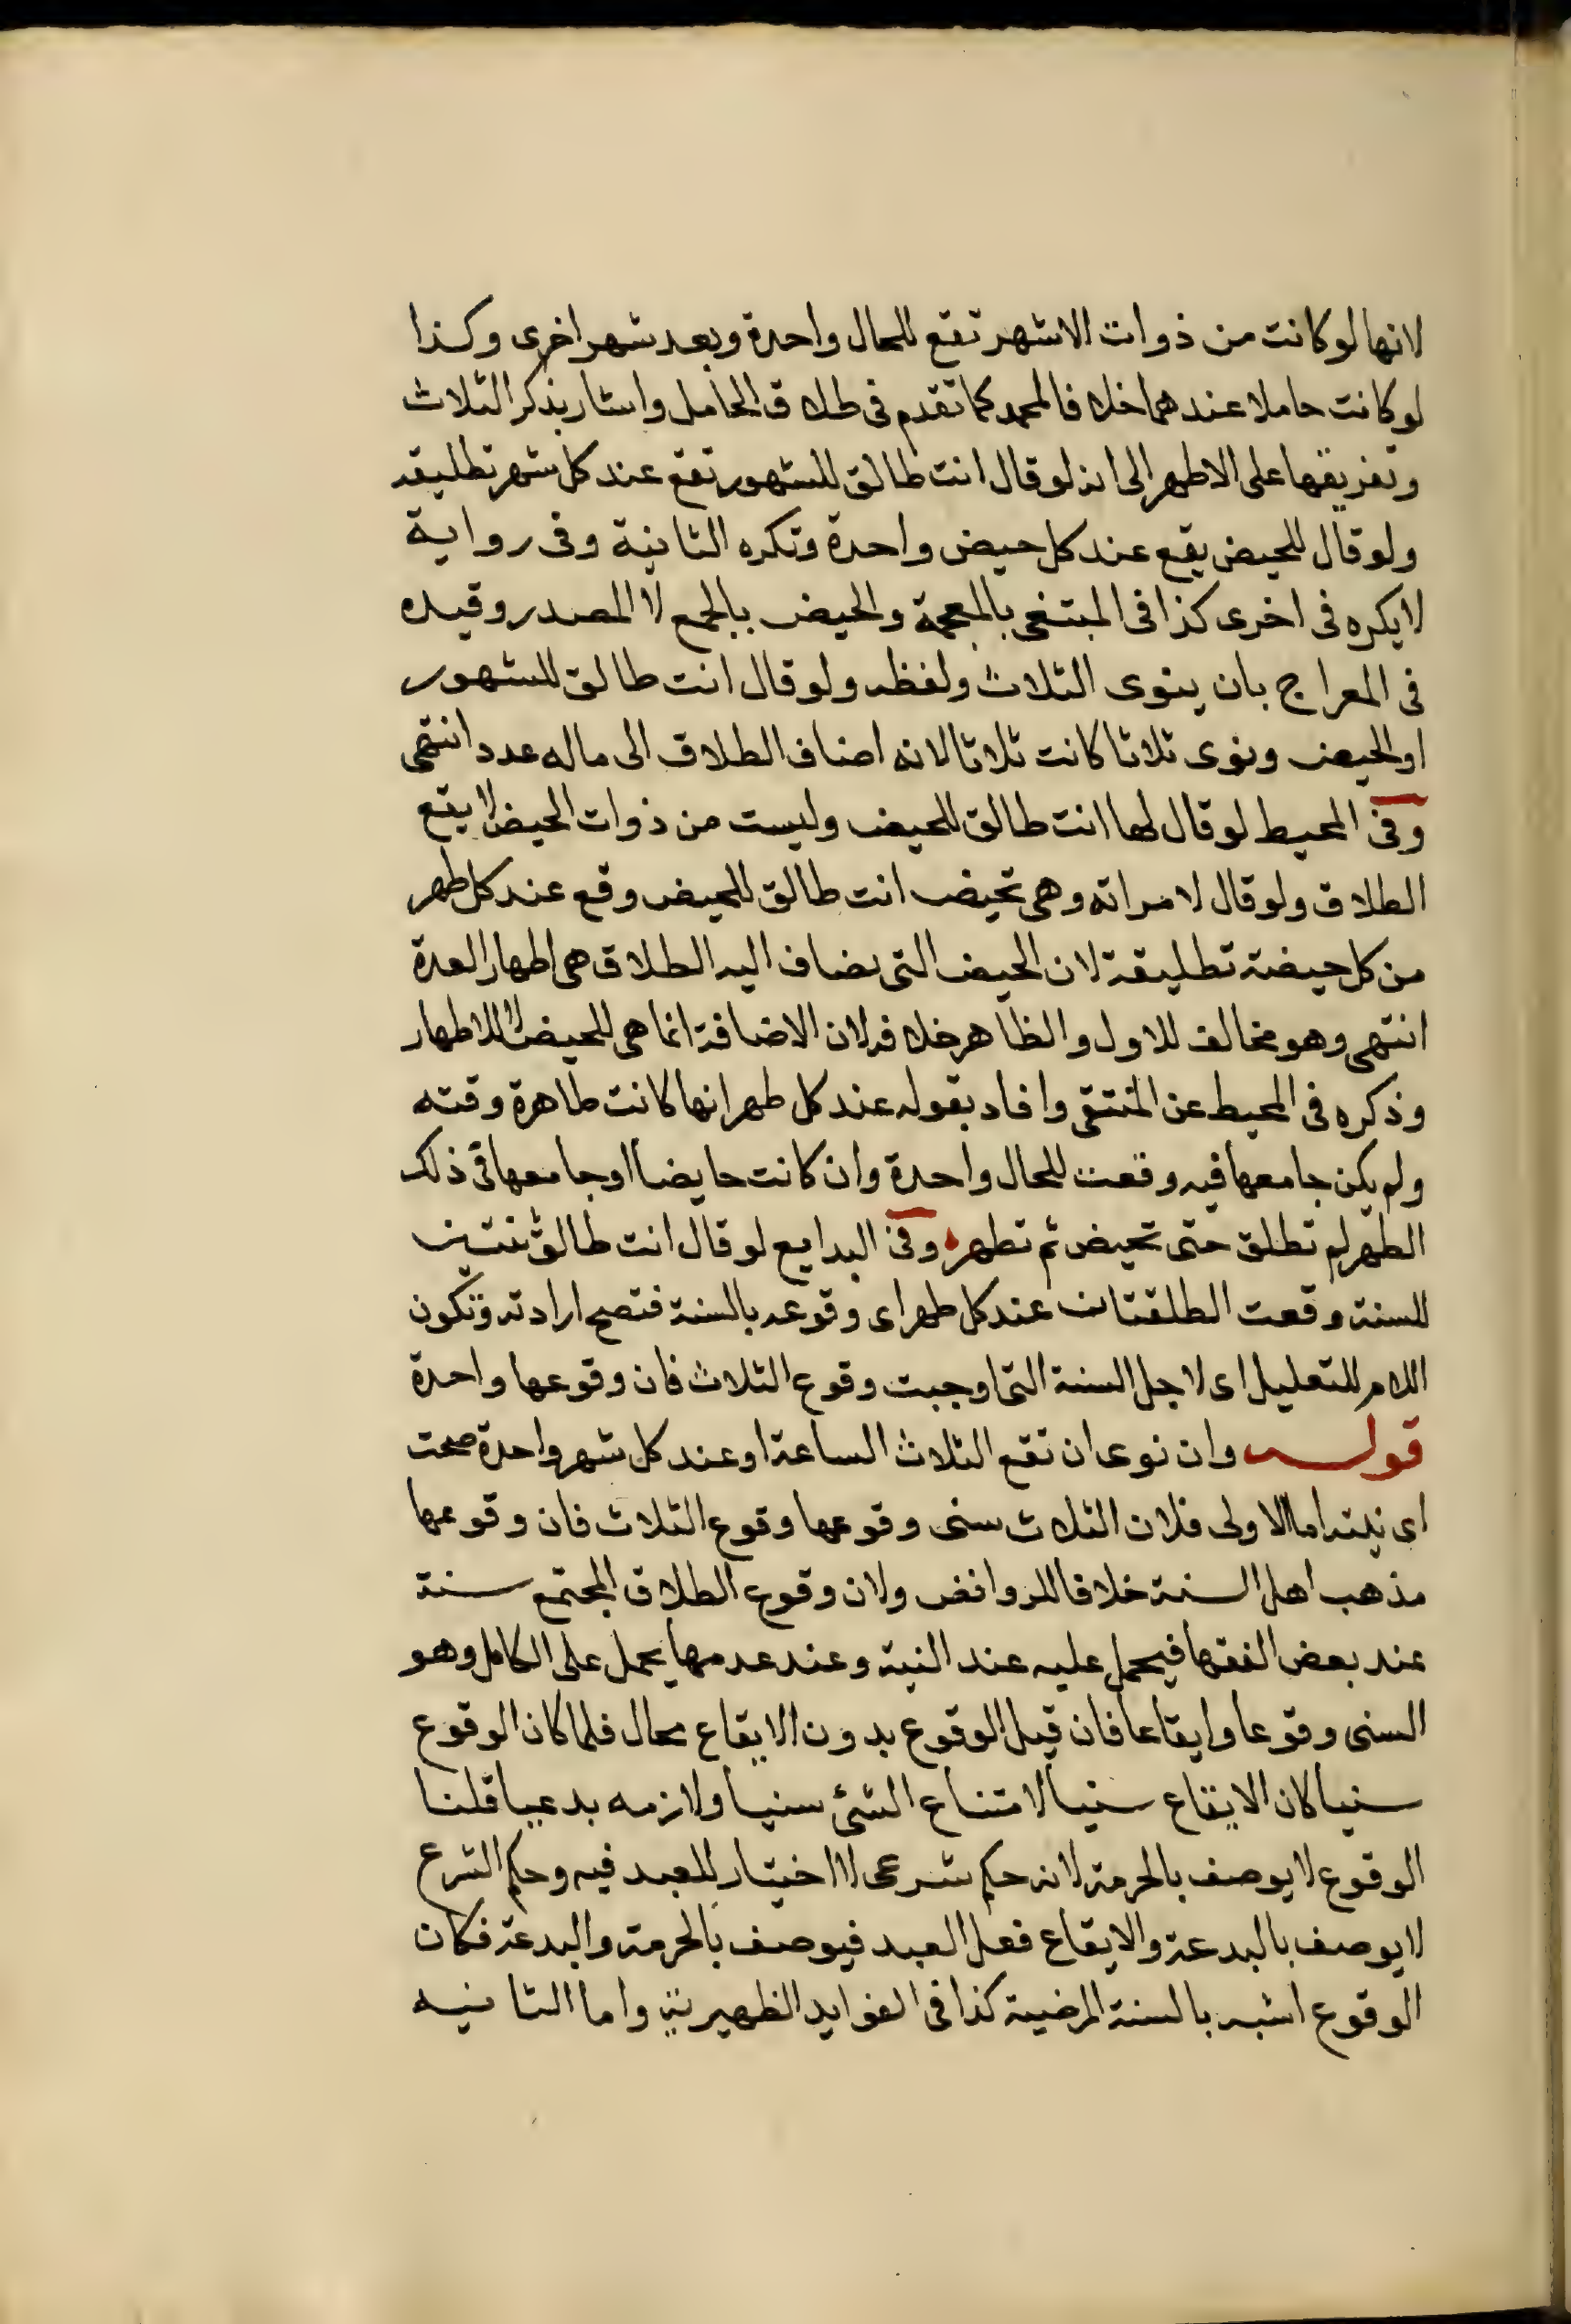 لانها لو كانت من ذوات الاشهر تقع للحال واحدة وبعد شهر اخرى وكذا
لو كانت حاملا عندهما خلافا لمحمد كما تقدم في طلاق الحامل واشار بذكر الثلاث
وتفريقها على الاطهر الى انه لو قال انت طالق للشهور تقع عند كل شهر تطليقه
ولو قال للحيض يقع عند كل حيض واحدة وتكره الثانية وفى رواية
لا يكره فى اخرى كذا فى المبتغى بالمعجمة والحيض بالجمع لا المصدر وقيده
فى المعراج بان ينوى الثلاث ولفظه ولو قال انت طالق للشهور
او الحيض ونوى ثلاثا كانت ثلاثا لانه اضاف الطلاق الى ماله عدد انتهى
وفى المحيط لو قال لها انت طالق للحيض وليست من ذوات الحيض لا يقع
الطلاق ولو قال لامراته وهى تحيض انت طالق للحيض وقع عند كل طهر
من كل حيضة تطليقة لان الحيض التى يضاف اليه الطلاق هى اطهار العدة
انتهى وهو مخالف للاول والظاهر خلافه لان الاضافة انما هى للحيض لا للاطهار
وذكره فى المحيط عن المنتقى وافاد بقوله عند كل طهر انها كانت طاهرة وقته
ولم يكن جامعها فيه وقعت للحال واحدة وان كانت حايضا او جامعها فى ذلك
الطهر لم تطلق حتى تحيض ثم تطهر وفى البدايع لو قال انت طالق ثنتين
للسنة وقعت الطلقتان عند كل طهر اى وقوعه بالسنة فتصح ارادته وتكون
اللام للتعليل اى لاجل السنة التى اوجبت وقوع الثلاث فان وقوعها واحدة
قوله وان نوى ان تقع الثلاث الساعة او عند كل شهر واحدة صحت
اى نيته اما الاولى فلان الثلاث سنى وقوعها وقوع الثلاث فان وقوعها
مذهب اهل السنة خلافا للروافض ولان وقوع الطلاق المجتمع سنة
عند بعض الفقها فيحمل عليه عند النية وعند عدمها يحمل على الكامل وهو
السنى وقوعا وايقاعا فان قيل الوقوع بدون الايقاع محال فلما كان الوقوع
سنيا كان الايقاع سنيا لامتناع الشئ سنيا ولازمه بدعيا قلنا
الوقوع لا يوصف بالحرمة لانه حكم شرعى لا اختيار للعبد فيه وحكم الشرع
لا يوصف بالبدعة والايقاع فعل العبد فيوصف بالحرمة والبدعة فكان
الوقوع اشبه بالسنة المرضية كذا فى الفوايد الظهيرية واما الثانيه